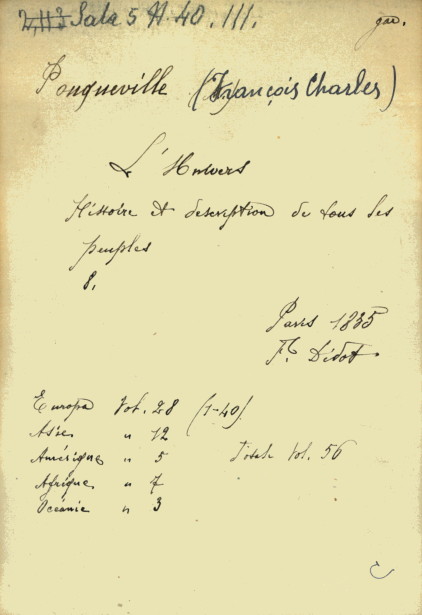 Sala 5 A. 40. III.
Pouqueville (François Charles)
L'Univers
Histoire et description de tous les
peuples
8.
Paris 1835
F. Didot
Europa Vol. 28 (1-40)
Asie " 12
Amérique " 5 Totale Vol. 56
Afrique " 7
Océanie " 3
C